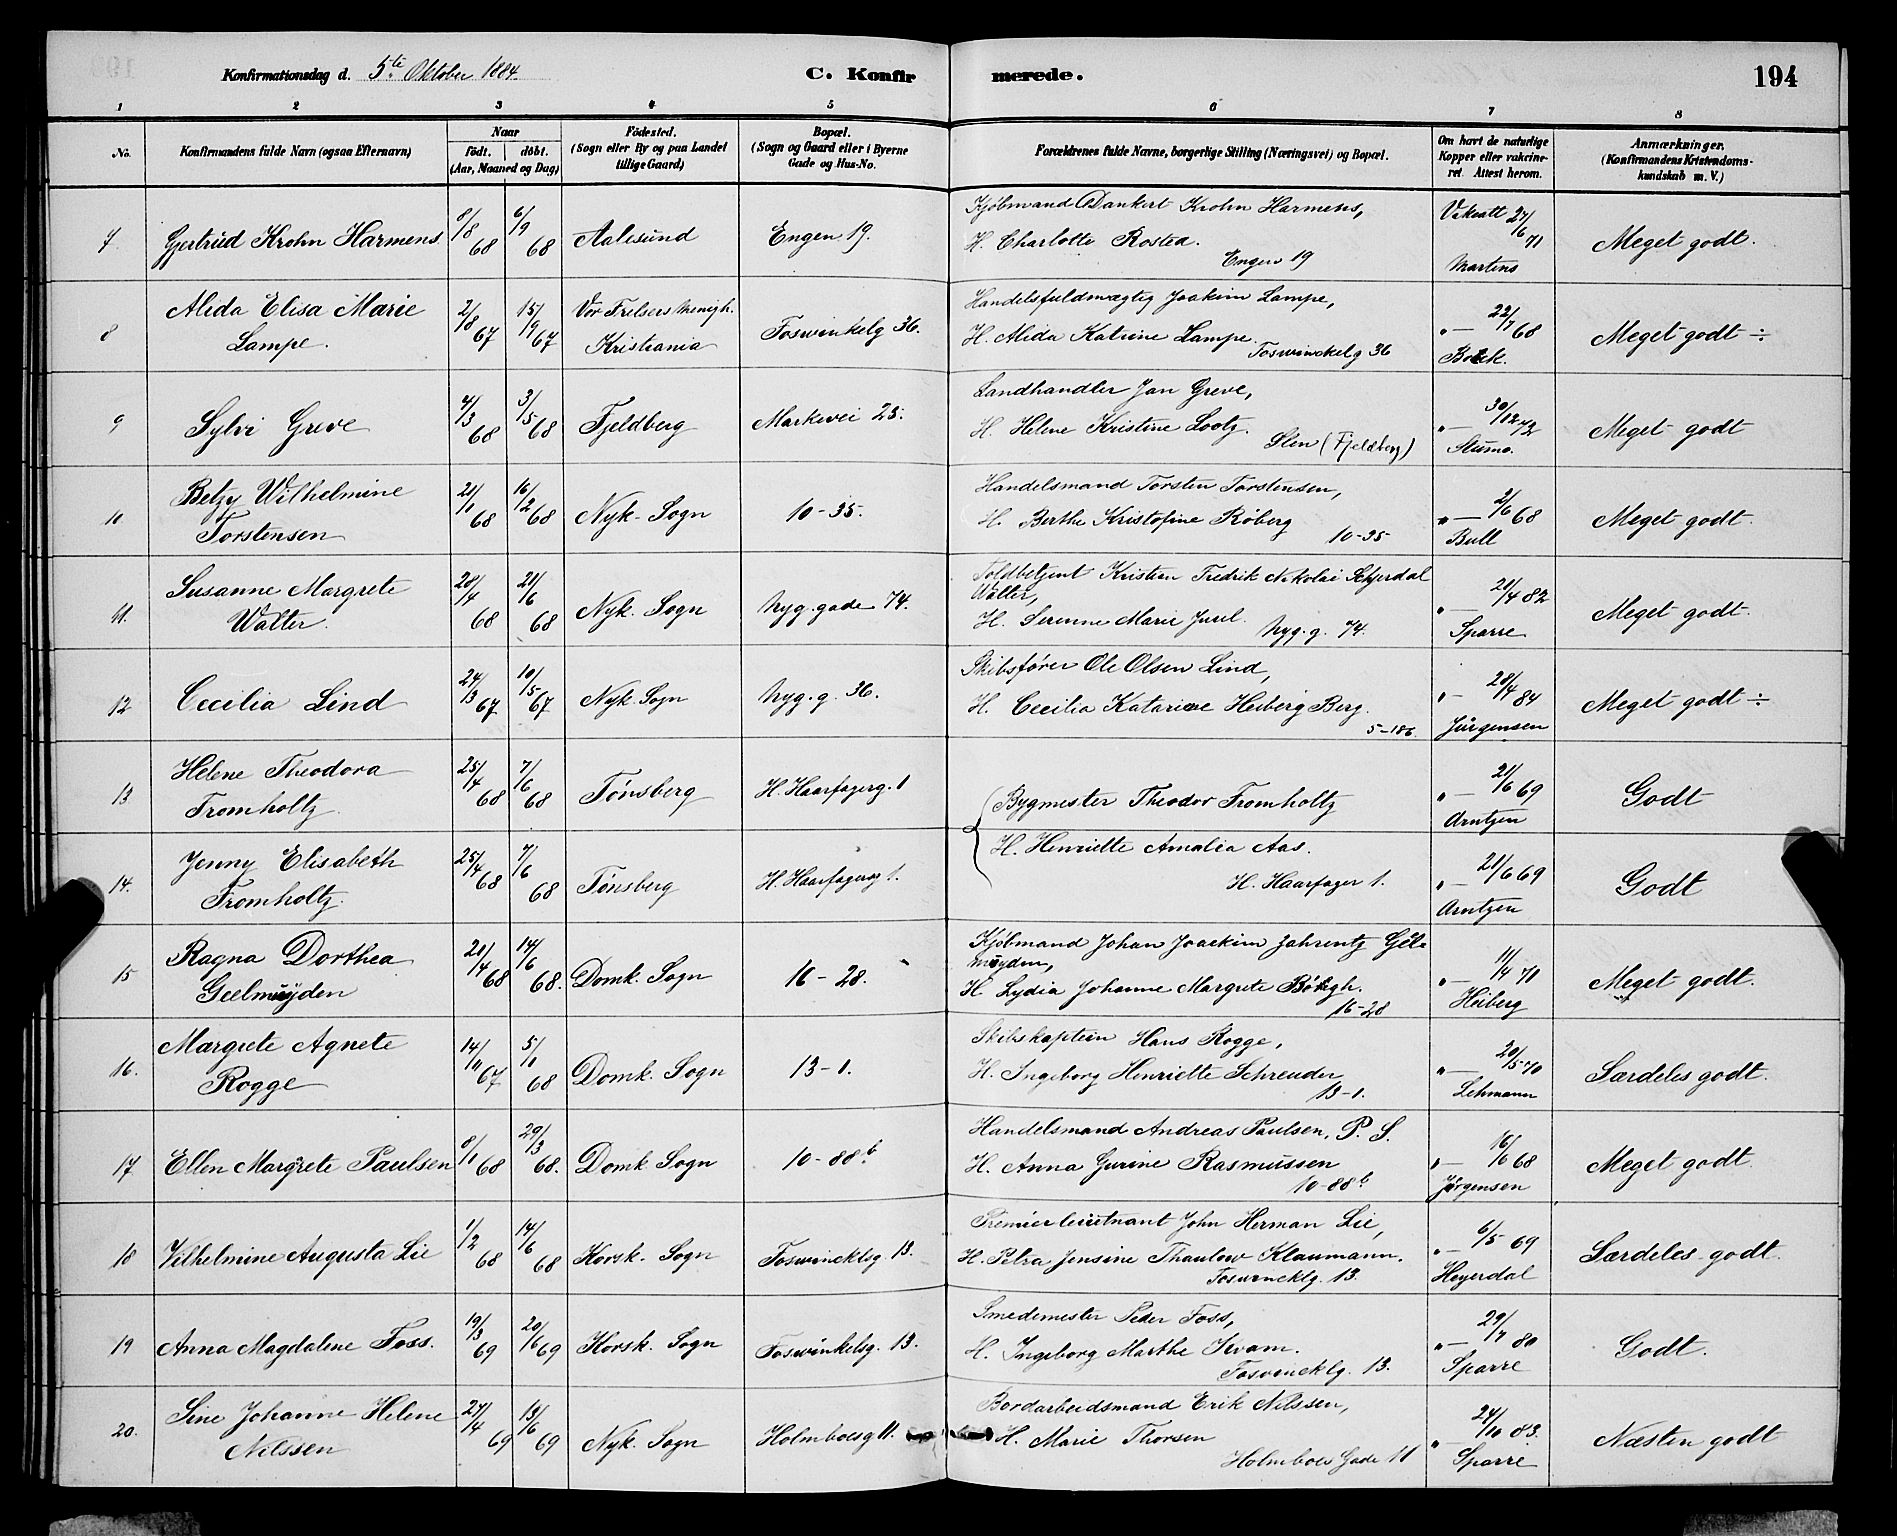 Konfirmationsdag d. 5te Oktober 1884. C. Konfirmerede. 194
1 2 3 4 5 6 7 8
No. Konfirmandens fulde Navn (ogsaa Efternavn) Naar født. døbt. (Aar, Maaned og Dag) Fødested. (Sogn eller By og paa Landet tillige Gaard) Bopæl. (Sogn og Gaard eller i Byerne Gade og Hus-No. Forældrenes fulde Navne, borgerlige Stilling (Næringsvei) og Bopæl. Om havt de naturlige Kopper eller vakcineret. Attest herom. Anmærkninger. (Konfirmandens Kristendomskundskab m. V.)
7. Gjertrud Krohn Harmens 8/8 68 6/9 68 Aalesund Engen 19. Kjøbmand Dankert Krohn Harmens,
H. Charlotte Rosted.
Engen 19 27/6 71 Martens Meget godt.
8 Alida Elisa Marie
Lampe. 2/8 67 15/9 67 Vor Frelsers Menigh.
Kristiania Foswinkelg 36. Handelsfuldmægtig Joakim Lampe,
H. Alida Katrine Lampe.
Foswinckelg 36 " — 22/7 68 Meget godt ÷
9 Sylvi Greve 4/3 68 3/5 68 Fjeldberg Markevei 23. Landhandler Jan Greve,
H. Helene Kristine Lootz.
(Fjeldberg) " — 30/12 72 Meget godt
10 Betzy Wilhelmine
Torstensen 21/1 68 16/2 68 Nyk. Sogn 10-35. Handelsmand Torsten Torstensen,
H. Berthe Kristofine Røberg
10-35 " — 2/6 68 Bull Meget godt.
11. Susanne Margrete
Walter. 28/4 68 21/6 68 Nyk. Sogn Nyg. gade 74. Toldbetjent Kristian Fredrik Nikolai Schjerdal
Walter,
H. Serenne Marie Juul. Nyg. g. 74. " — 21/4 82 Sparre Meget godt.
12 Cecilia Lind 24/3 67 10/5 67 Nyk. Sogn Nyg. g. 36. Skibsfører Ole Olsen Lind,
H. Cecilia Katarine Heiberg Berg.
5-186. " — 28/4 84 Jürgensen Meget godt ÷
13 Helene Theodora
Fromholtz. 25/4 68 7/6 68 Tønsberg H. Haarfagerg. 1 Bygmester Theodor Fromholtz " — 21/6 69 Arntzen Godt
14. Jenny Elisabeth
Fromholtz. 25/4 68 7/6 68 Tønsberg H. Haarfagerg 1. H. Henriette Amalia Aas.
H. Haarfager 1. " — 21/6 69 Arntzen Godt
15 Ragna Dorthea
Geelmuyden 21/4 68 14/6 68. Domk. Sogn 16-28. Kjøbmand Johan Joackim Jahrentz Geel-
muyden,
H Lydia Johanne Margrete Bøhgh.
16-28 " — 11/4 71 Heiberg Meget godt.
16. Margrete Agnete
Rogge 14/11 67 5/1 68 Domk. Sogn 13-1. Skibskaptein Hans Rogge,
H. Ingeborg Henriette Schreuder
13-1. " — 20/5 70 Lehmann Særdeles godt.
17 Ellen Margrete Paulsen 8/1 68 29/3 68. Domk Sogn 10-88b Handelsmand Andreas Paulsen, P. S.
H. Anna Gurine Rasmussen
10-88b " — 16/6 68 Jørgensen Meget godt.
18 Vilhelmine Augusta Lie 1/2 68 14/6 68 Korsk. Sogn Foswinckelsg. 13. Premierleutnant John Herman Lie,
H. Petra Jensine Thaulow Klaumann.
Foswincklg. 13. " — 6/5 69 Heyerdal Særdeles godt.
19 Anna Magdalene Foss. 19/3 69 20/6 69 Korsk. Sogn Foswinkelsg. 13. Smedemester Peder Foss,
H. Ingeborg Marthe Kvam.
Foswincklg. 13. " — 29/7 80 Sparre Godt.
20. Sine Johanne Helene
Nilssen 27/4 69 13/6 69 Nyk. Sogn Holmboesg 11. Bordarbeidsmand Erik Nilssen,
H. Marie Thorsen
Holmboes Gade 11 " — 24/10 83. Sparre Næsten godt